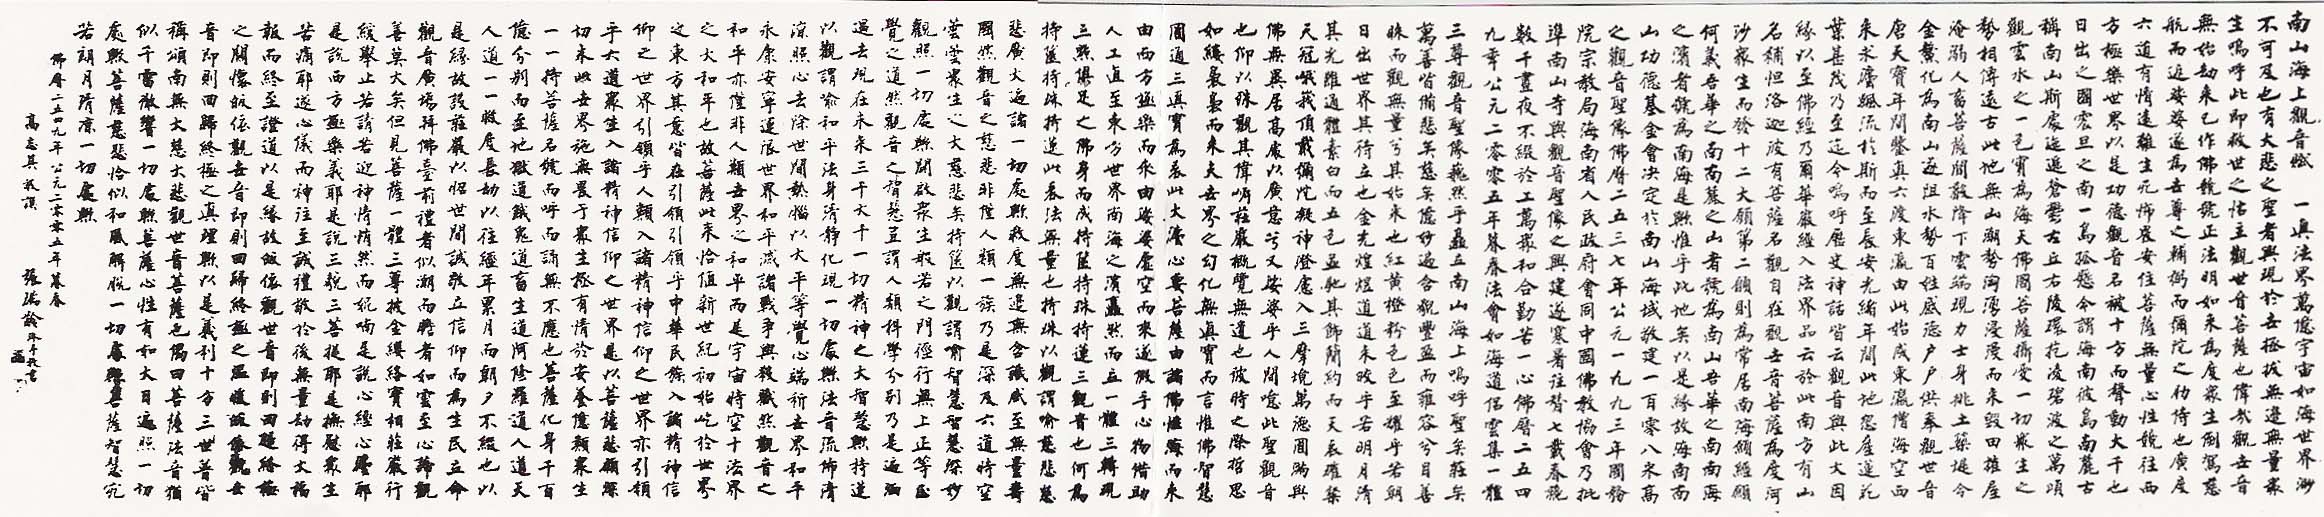 南山海上觀音賦　一真法界萬億宇宙如海世界渺
不可及也有大悲之聖者興現於世拯拔無邊無量眾
生嗚呼此即救世之怙主觀世音菩薩也偉哉觀世音
無始劫來已作佛號號正法明如來為度眾生倒駕慈
航而返娑婆遂為世尊之輔弼而彌陀之劦侍也廣度
六道有情遠離生死怖畏安住菩薩無量心性競往西
方極樂世界以是功德觀音名被十方而聲動大千也
日出之國震旦之南一島孤懸今謂海南彼島南麓古
稱南山斯處海邈蒼鬱左丘右陵環抱凌碧波之萬頃
觀雲水之一色實為海天佛國菩薩攝受一切眾生之
勢相傳遠古此地無山潮勢洶湧浸漫而來毀田摧屋
淹溺人畜菩薩聞敕降下雲端現力士身挑土築堤今
金鰲化為南山海阻水勢百姓感德戶戶供奉觀世音
唐天寶年間鑒真六渡東瀛由此始成東瀛僧海空西
來求屢颶流於斯而至長安光緒年間此地忽產蓮花
葉甚茂乃至迄今嗚呼歷史神話皆云觀音與此大因
緣以至佛經乃爾華嚴經入法界品云於此南方有山
名補怛洛迦彼有菩薩名觀自在觀世音菩薩為度河
沙眾生而發十二大願第二願則為常居南海願經願
何義吾華之南南麓之山者號為南山吾華之南南海
之濱者號為南海是歟惟乎此地矣以是緣故海南南
山功德基金會決定於南山海域敬建一百零八米高
之觀音聖像佛曆二五三七年公元一九九三年國務
院宗教局海南省人民政府會同中國佛教協會乃批
準南山寺興觀音聖像之興建遂寒暑往替七載春秋
數千晝夜不綴於工萬眾和合勤苦一心佛曆二五四
九年公元二零零五年暮春法會如海道侶雲集一體
三尊觀音聖像巍然乎矗立南山海上嗚呼聖矣莊矣
萬善皆備悲矣慈矣億妙遍含觀豐盈而雍容兮目善
眯而觀無量兮其始來也紅黃橙粉色色至耀乎若朝
日出世界其待立也金光煌煌道道未晈乎若明月清
其光雖通體素白而五色並馳其飾簡約而天衣璀粲
天冠峨峨頂戴彌陀凝神澄慮入三摩境第德圓融與
佛無異居高處以廣慧兮又娑婆乎人間噫此聖觀音
也仰以殊觀其偉嶙莊嚴概覽無遺也彼時之際哲思
如縷裊裊而來夫世界之幻化無真實而言惟佛智慧
圓通三真實為表此大澹心要菩薩由諸佛性海而來
由西方極樂而來由娑婆虛空而來遂假乎心物借助
人工直至東方世界南海之濱矗然而立一體三轉現
三照俱足之佛身而成持篋持珠持蓮三觀音也何為
持篋持珠持蓮此表法無量也持珠以觀謂喻慈悲慈
悲廣大遍諸一切處歟救度無邊無含識咸至無量壽
國然觀音之慈悲非僅人類一族乃是深及六道時空
芸芸眾生之大慈悲矣持篋以觀謂喻智慧智慧深妙
觀照一切處歟開啟眾生般若之門徑行無上正等正
覺之道然觀音之智慧豈謂人類科學分別乃是遍涵
過去現在未來三千大千一切精神之大智慧歟持蓮
以觀謂喻和平法身清靜化現一切處歟法音流佈清
涼照心去除世間熱惱以大平等覺心端祈世界和平
永康安寧運限世界和平減諸戰爭與殺戮然觀音之
和平亦僅非人類世界之和平而是宇宙時空十法界
之大和平也故菩薩此來恰值新世紀初始屹於世界
之東方其意皆在引領引領乎中華民族入諸精神信
仰之世界引領乎人類入諸精神信仰之世界亦引領
乎大道眾生入諸精神信仰之世界是以菩薩悲願深
切來此世界施無畏于眾生極有情於安養億類眾生
一一持菩薩名號而呼而誦無不應也菩薩化身千百
億分別而至地獄道餓鬼道畜生道阿修羅道人道天
人道一一救度長劫以往經年累月而朝夕不綴也以
是緣故設莊嚴以昭世間誠敬立信仰而為生民立命
觀音廣場拜佛臺前禮者似潮而瞻者如雲至心諦觀
善莫大矣但見菩薩一體三尊披金纓絡寶相莊嚴行
緩舉止若請若迎神情悄然而絮喃是說心經心麼耶
是說西方極樂義耶是說三藐三菩提耶是撫慰眾生
苦痛耶遂心儀而神往至誠禮敬於後無量劫得大福
報而終至證道以是緣故做依觀世音即則回歸終極
之關懷皈依觀世音即則回歸終極之溫暖皈依觀世
音即則回歸終極之真理歟以是義利十方三世普皆
稱頌南無大慈大悲觀世音菩薩也偈曰菩薩法音猶
似千雷散響一切處歟菩薩心性有如大日遍照一切
處歟菩薩慈悲恰似和風解脫一切處歟菩薩智慧宛
若朗月清涼一切處歟
佛曆二五四九年公元二零零五年暮春
高志其敬撰　張瑞齡